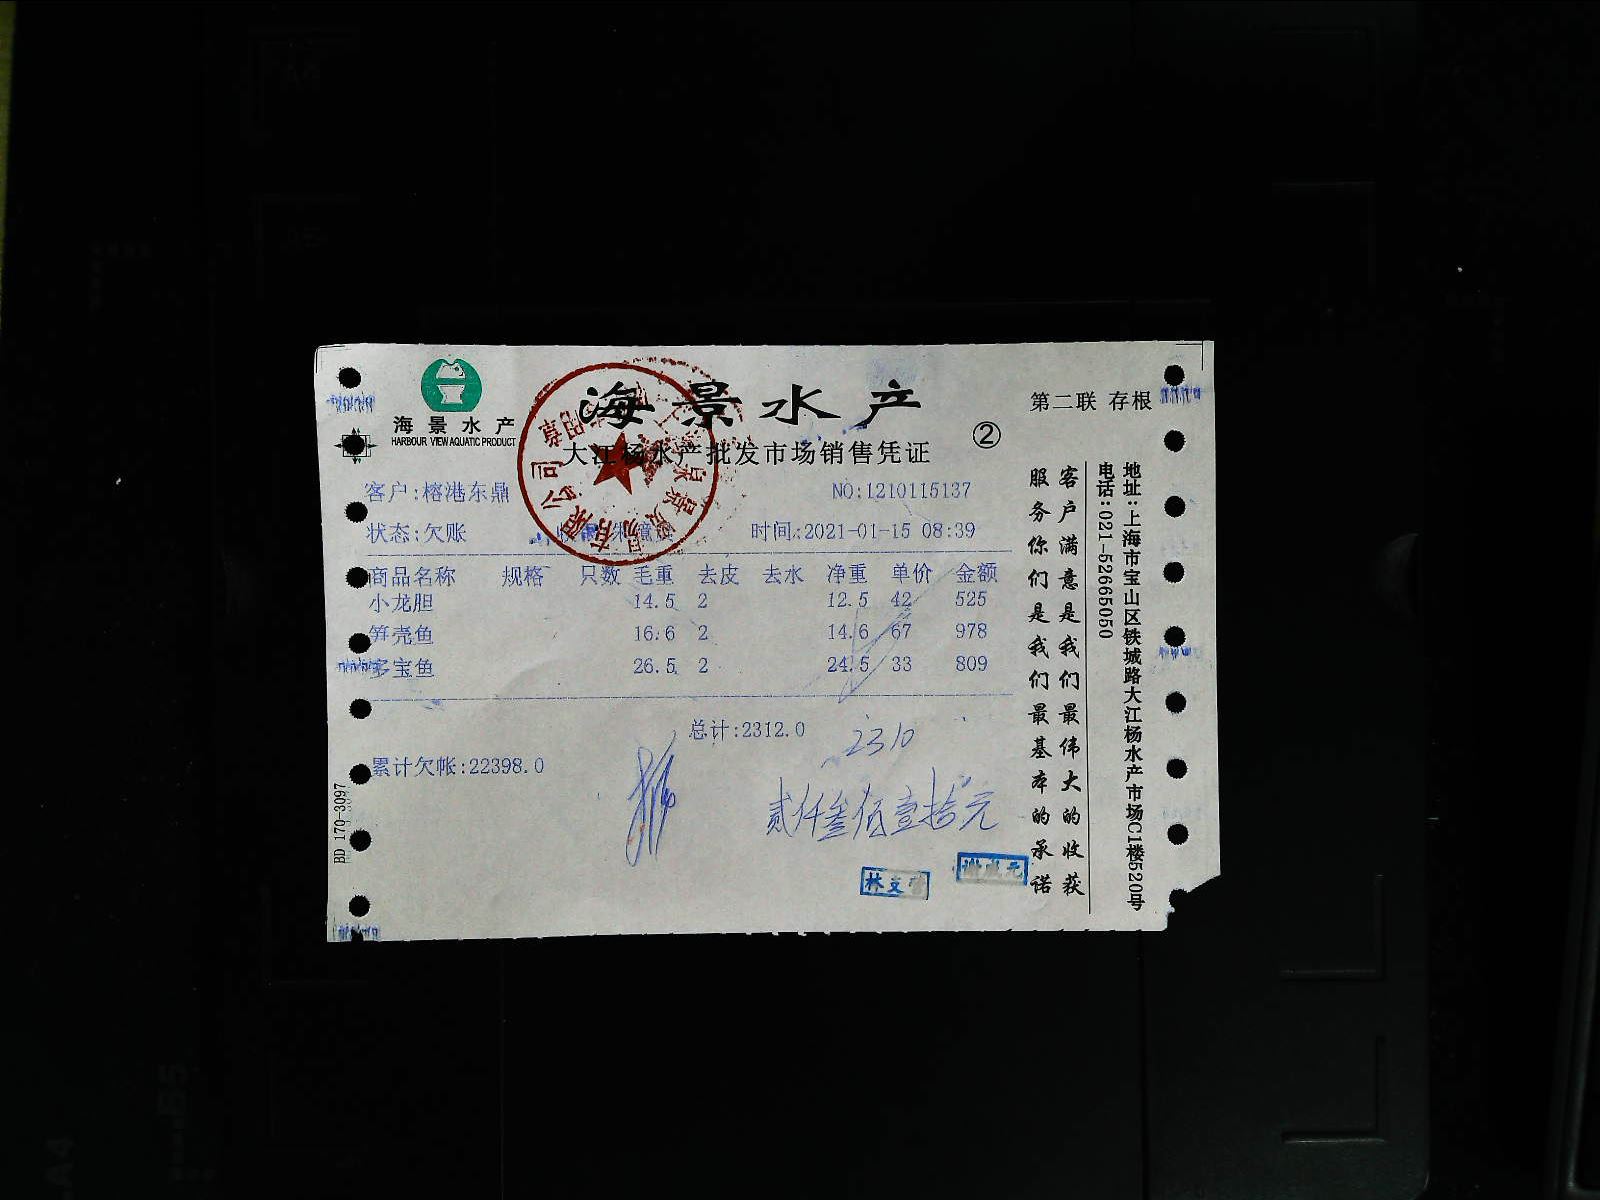 海景水产
HARBOUR VIEW AQUATIC PRODUCT
海景水产
大江杨水产批发市场销售凭证
②
第二联 存根
客户:榕港东鼎
NO:1210115137
状态:欠账
时间:2021-01-15 08:39
商品名称 规格 只数 毛重 去皮 去水 净重 单价 金额
小龙胆 14.5 2 12.5 42 525
笋壳鱼 16.6 2 14.6 67 978
多宝鱼 26.5 2 24.5 33 809
总计:2312.0
2310
累计欠帐:22398.0
贰仟叁佰壹拾元
BD 170-3097
客户满意是我们最伟大的收获
服务你们是我们最基本的承诺
地址:上海市宝山区铁城路大江杨水产市场C1楼520号
电话:021-52665050